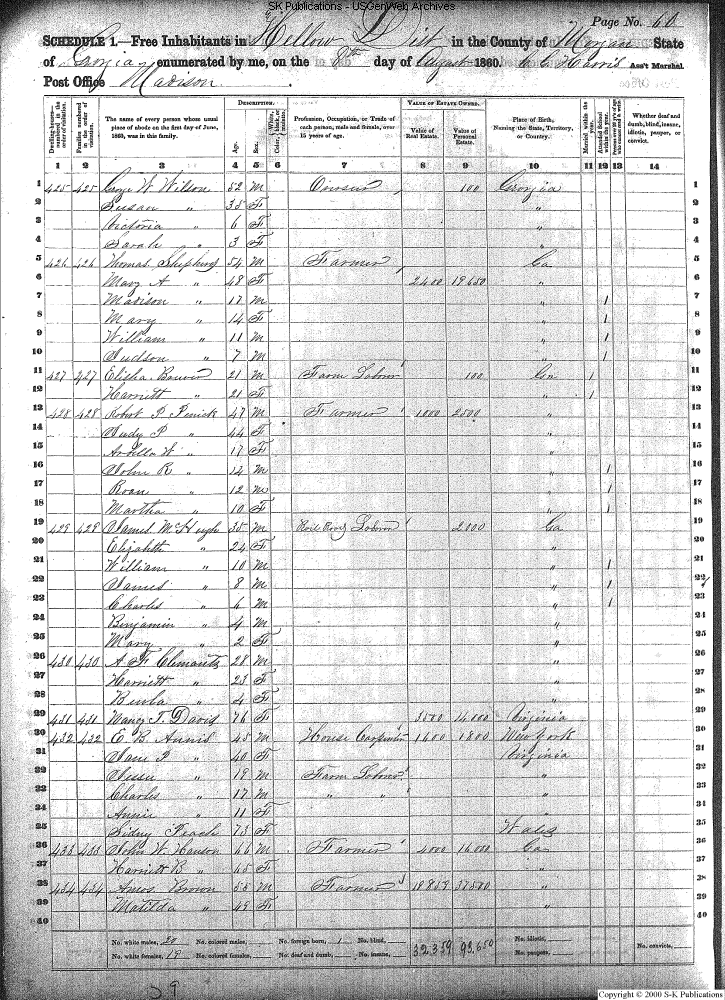 SK Publications - USGenWeb Archives
Page No. 60
SCHEDULE 1.—Free Inhabitants in Dist in the County of Morgan State
of Georgia enumerated by me, on the 8th day of August 1860. Harris Ass't Marshal
Post Office Madison
Dwelling-houses—numbered in the order of visitation.
Families numbered in the order of visitation.
The name of every person whose usual place of abode on the first day of June, 1860, was in this family.
DESCRIPTION.
Age.
Sex.
Color, White, black, or mulatto.
Profession, Occupation, or Trade of each person, male and female, over 15 years of age.
VALUE OF ESTATE OWNED.
Value of Real Estate.
Value of Personal Estate.
Place of Birth, Naming the State, Territory, or Country.
Married within the year.
Attended School within the year.
Whether deaf and dumb, blind, insane, idiotic, pauper, or convict.
1 2 3 4 5 6 7 8 9 10 11 12 13 14
1 425 425 George W Wilson 52 M 100 Georgia 1
2 Susan " 35 F " 2
3 Victoria " 6 F " 3
4 Sarah " 3 F " 4
5 426 426 Thomas 54 M Farmer Ga 5
6 Mary A " 48 F 2400 19650 " 6
7 Madison " 17 M " 1 7
8 Mary " 14 F " 1 8
9 William " 11 M " 1 9
10 Judson " 7 M " 1 10
11 427 427 Elisha 21 M Farm Laborer 100 Ga 1 11
12 Harriett " 21 F " 1 12
13 428 428 Robert P Penick 47 M Farmer 1000 2500 " 13
14 Judy P " 44 F " 14
15 W " 17 F " 15
16 John R " 14 M " 1 16
17 " 12 M " 1 17
18 Martha " 10 F " 1 18
19 429 429 James McHugh 35 M Rail Road Laborer 2000 Ga 19
20 Elizabeth " 24 F " 20
21 William " 10 M " 1 21
22 James " 8 M " 1 22
23 Charles " 6 M " 1 23
24 Benjamin " 4 M "
25 Mary " 2 F "
26 430 430 A F 28 M "
27 Harriett " 23 F "
28 " 4 F "
29 431 431 Nancy T. David 76 F 3500 14000 Virginia
30 432 432 E B Annis 45 M House Carpenter 1600 1800 New York
31 Jane P " 40 F Virginia
" 19 M Farm Laborer "
Charles " 17 M " " "
Annie " 11 F "
Sidney 73 F Wales
36 433 433 John W Hanson 66 M Farmer 4000 16000 Ga
37 Harriett B " 45 F "
38 434 434 Amos Brown 55 M Farmer 18859 37500 "
39 Matilda " 49 F "
40
No. white males, 20 No. colored males, No. foreign born, 1 No. blind, No. idiotic,
No. white females, 19 No. colored females, No. deaf and dumb, No. insane, 32,359 93,650 No. paupers, No. convicts,
Copyright © 2000 S-K Publications